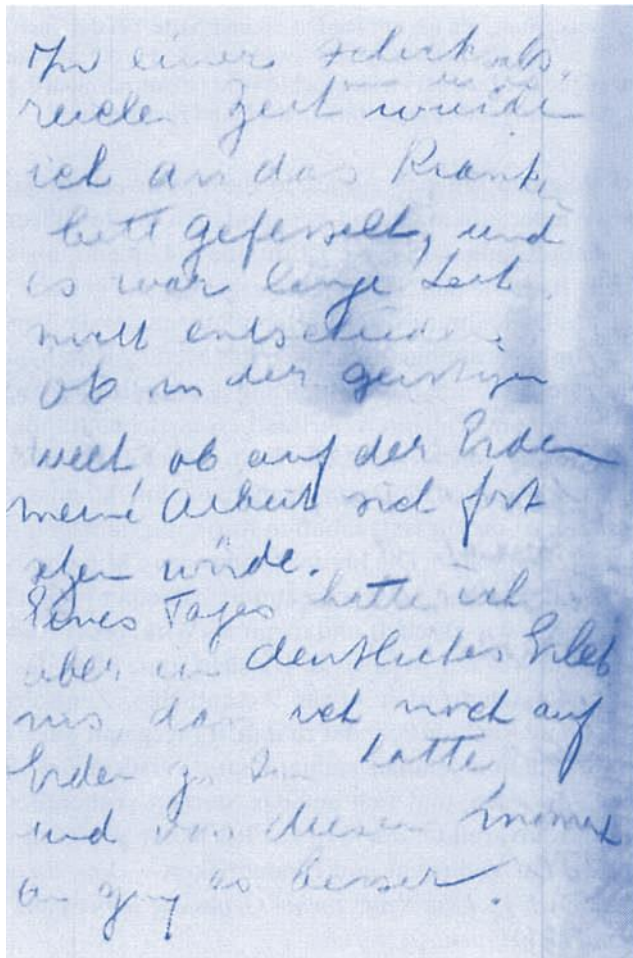 In einer schicksals-
reichen Zeit wurde
ich an das Kranken
bett gefesselt, und
es war lange Zeit
nicht entschieden
ob in der geistigen
welt, ob auf der Erden
meine Arbeit sich fort
setzen würde.
Eines Tages hatte ich
aber ein deutliches Erleb
nis das ich noch auf
Erden zu hatte
und von diesem Moment
an ging es besser.